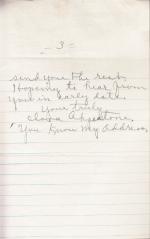 - 3 -
send you the rest.
Hopeing to hear from
you in early date.
Your truly
Clara
"You Know My Address,